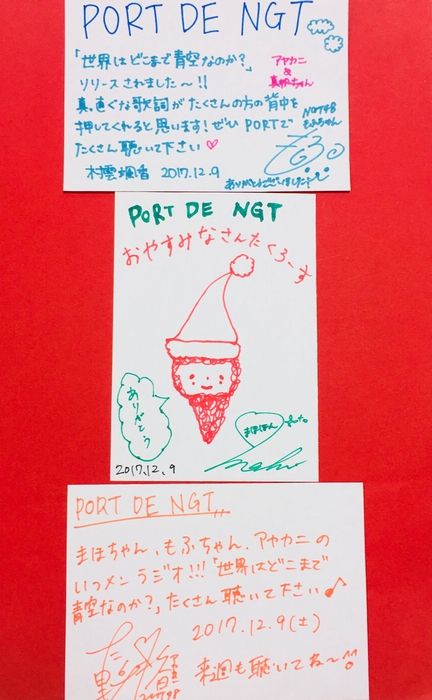 PORT DE NGT
「世界はどこまで青空なのか?」
リリースされました〜!!
真、直ぐな歌詞がたくさんの方の背中を
押してくれると思います!ぜひPORTで
たくさん聴いて下さい♡
アヤカニ
&
真帆ちゃん
NGT48
もふちゃん
村雲颯香 2017.12.9
ありがとうございました!
PORT DE NGT
おやすみなさんたくろーす
ありがとう
まほほん
2017.12.9
PORT DE NGT
まほちゃん、もふちゃん、アヤカニの
いつメンラジオ!!!「世界はどこまで
青空なのか?」たくさん聴いて下さい♪
2017.12.9(土)
来週も聴いてね〜!!